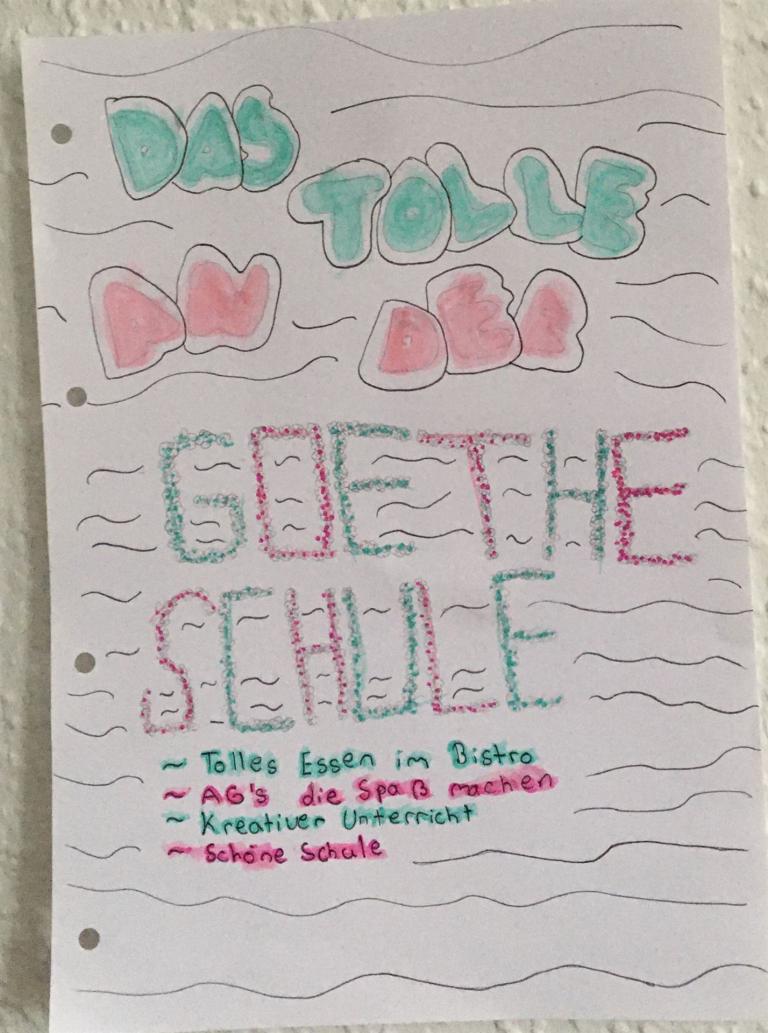 DAS
TOLLE
AN DER
GOETHE
SCHULE
~ Tolles Essen im Bistro
~ AG's die Spaß machen
~ Kreativer Unterricht
~ Schöne Schule